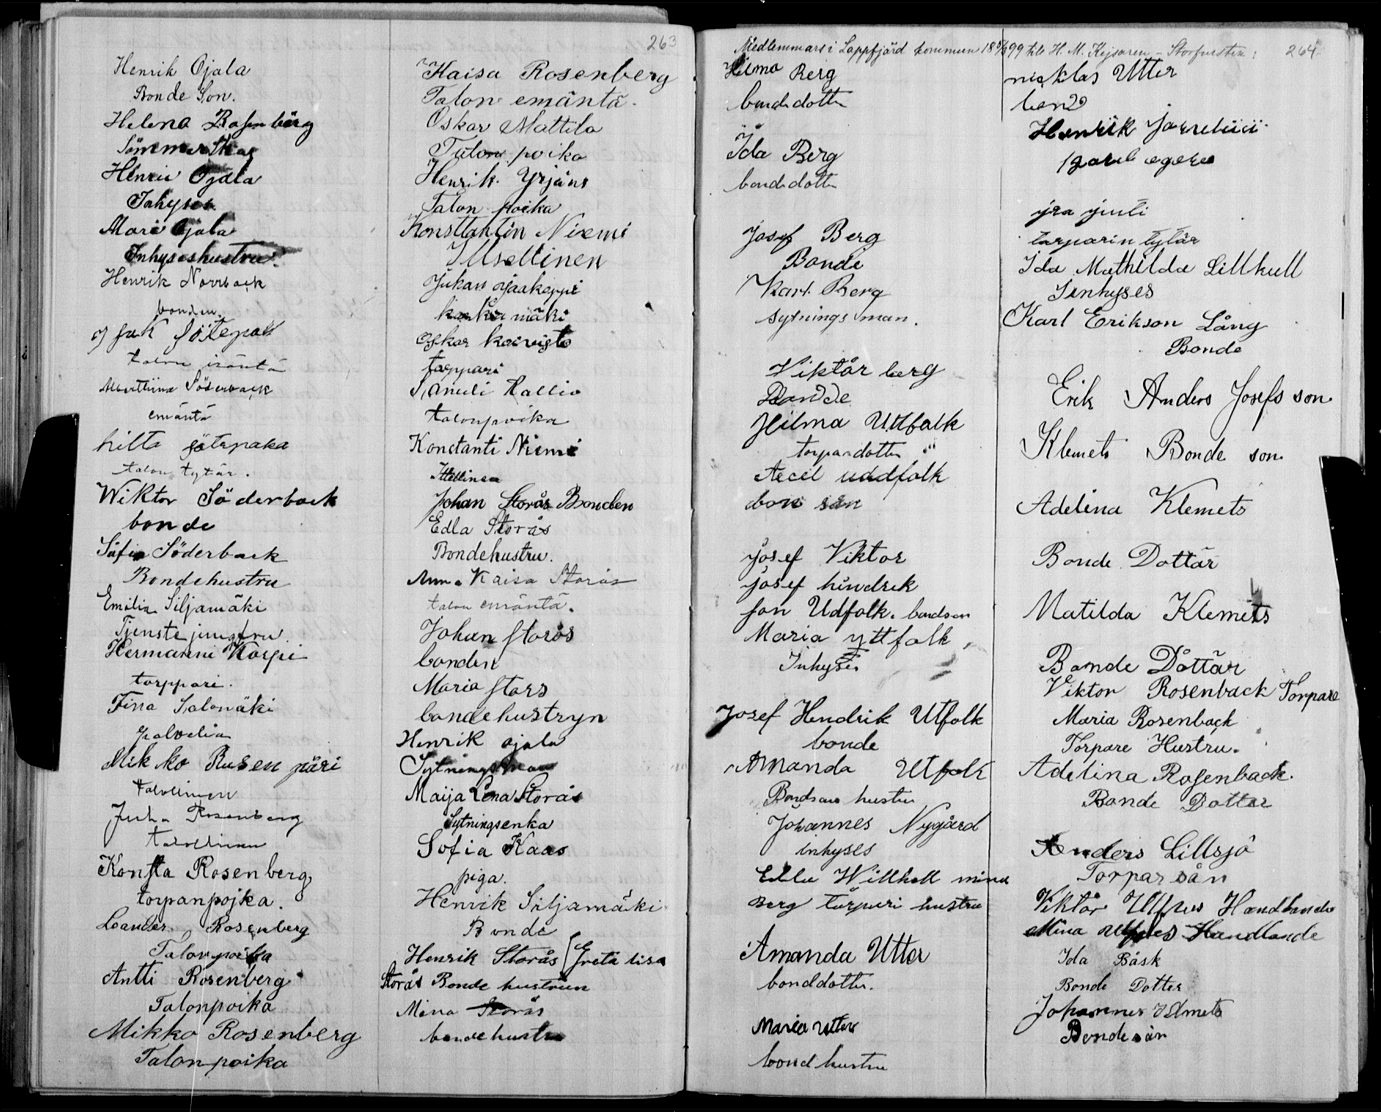 263
Henrik Ojala
Bonde Son.
Helena Rosenbärg
Henrik Ojala
Inhyses
Mari Ojala
Inhyseshustru.
Henrik Norrback
bonden.
talon isäntä
Söderback
emäntä
hilta
talon tytär.
Wiktor Söderback
bonde
Sofia Söderback
Bondehustru
Emilia Siljamäki
Tjenstejungfru.
Hermanni Karpi
torppari.
Fina Salomäki
palvelia
Mikko Rusenpäri
talollinen
Juha Rosenberg
talollinen
Konsta Rosenberg
torpanpojka.
Leander Rosenberg
Talonpoika
Antti Rosenberg
Talonpoika
Mikko Rosenberg
Talonpoika
Kaisa Rosenberg
Talon emäntä.
Oskar Mattila
Talon poika
Henrik Yrjäns
Talon poika
Konstantin Niemi
Itsellinen
Juhan Jaakoppi
mäki
Oskar Koivisto
torppari
Samuli Kallio
talonpoika
Konstanti Niemi
Itsellinen
Johan Storås Bonden
Edla Storås
Bondehustru.
Anna Kaisa Storås
talon emäntä.
Johan storås
bonden
Maria stors
bondehustryn
Henrik ojala
Sytningsman
Maija Lena Storås
Sytningsenka
Sofia Kaas
piga.
Henrik Siljamäki
Bonde
Henrik Storås Greta lisa
Storås Bonde hustrun
Mina Storås
bondehustru
Medlemmar i Lappfjärd kommun till H. M. Kejsaren - Storfursten: 264
Hilma Berg
bondedotter
Ida Berg
bondedotter
Josef Berg
Bonde
Karl Berg
sytningsman.
Viktår berg
Bande
Hilma Utfolk
torpardotter
Axcil uudfolk
bon sån
Josef Viktor
Josef hindrik
Jon Udfolk. bondson
Maria yttfolk
Inhyses
Josef Hendrik Utfolk
bonde
Amanda Utfolk
Bondsons hustru
Johannes Nygård
inhyses
Berg torpari hustru
Amanda Utter
bonddotter.
Maria utter
bond hustru
nicklas Utter
bond
Henrik
torparin tytär
Ida Mathilda Lillkull
Innhyses
Karl Erikson Lång
Bonde
Erik Anders Josefs son
Klemets Bonde son
Adelina Klemets
Bonde Dottär
Matilda Klemets
Bonde Dottär
Viktor Rosenback Torpare
Maria Rosenback
Torpare Hustru.
Adelina Rosenback.
Bonde Dotter
Anders Lillsjö
Torpar sån
Viktår Ulfves Handlande
Mina Ulfves Handlande
Ida Bäsk
Bonde Dotter
Johannes Klemets
Bondesån